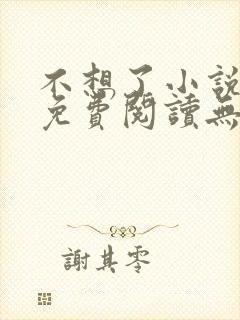 不想了小說
免費閱讀無
謝其零